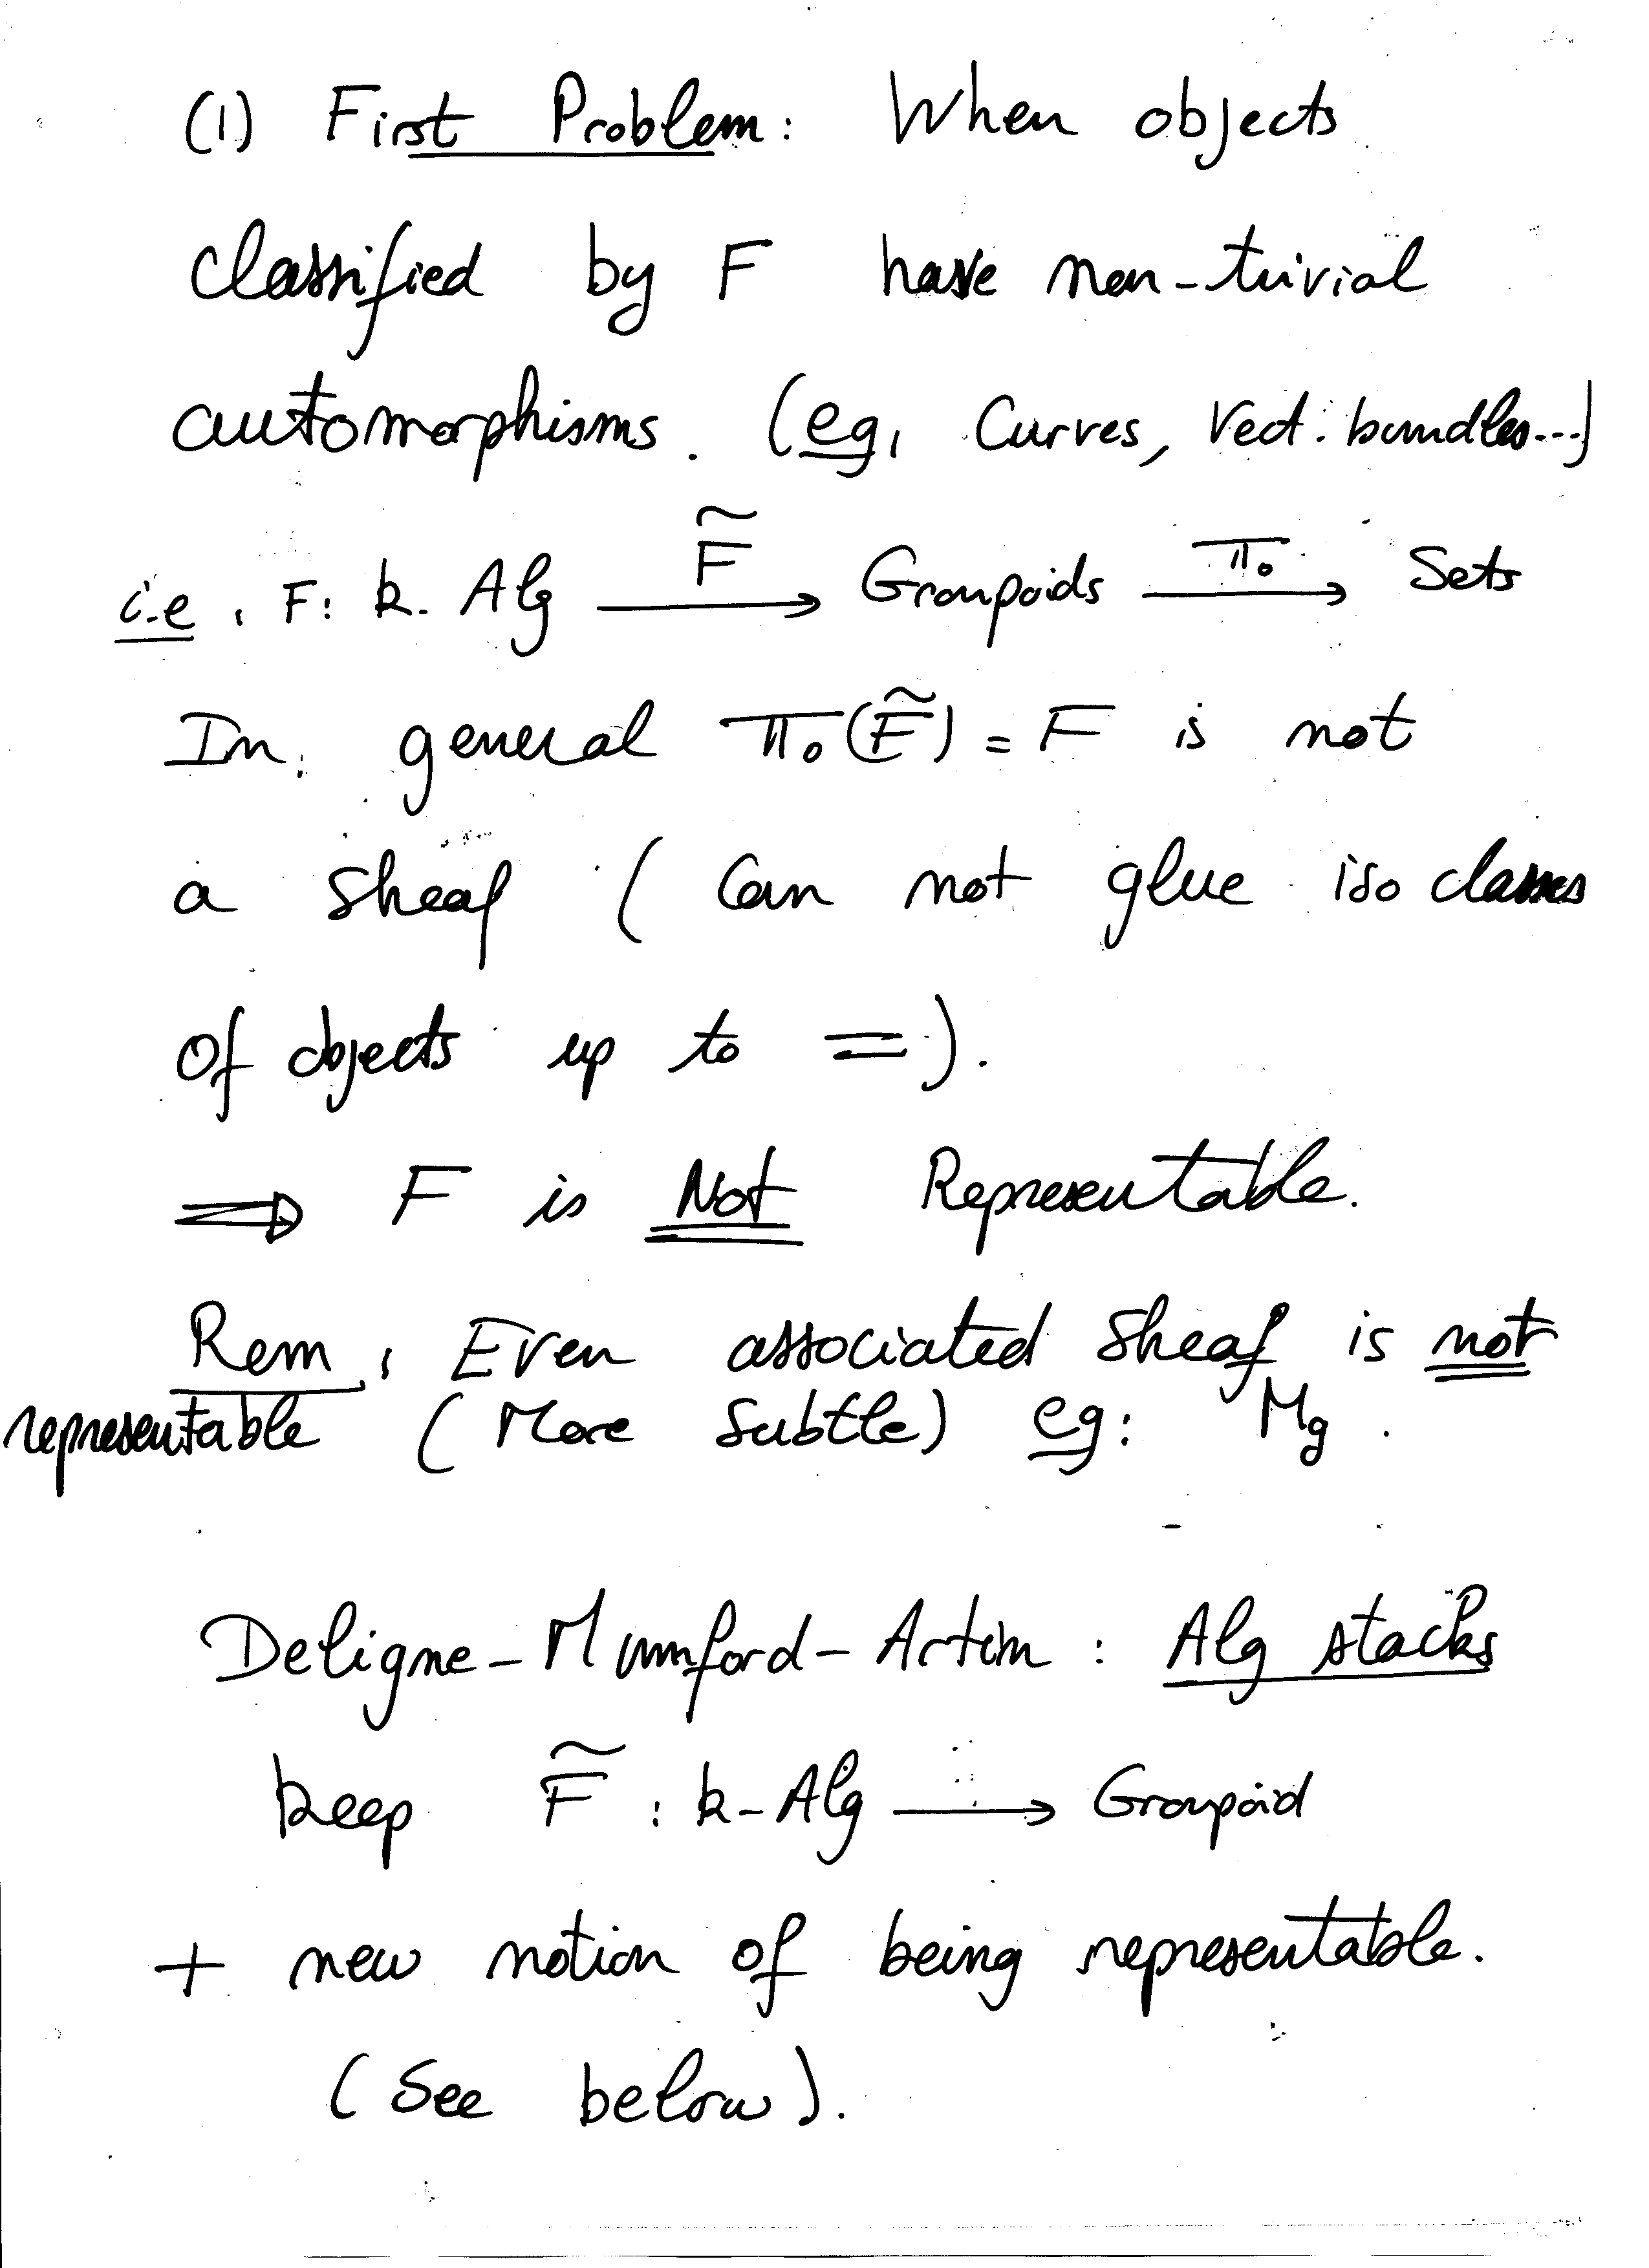 (1) First Problem: When objects
classified by F have non-trivial
automorphisms. (eg, Curves, Vect. bundles...)
i.e, F: k-Alg —F̃→ Groupoids —π₀→ Sets
In general π₀(F̃) = F is not
a sheaf (Can not glue iso classes
of objects up to =).
⟹ F is Not Representable.
Rem, Even associated sheaf is not
representable (More subtle) eg: Mg.
Deligne-Mumford-Artin: Alg stacks
keep F̃: k-Alg ⟶ Groupoid
+ new notion of being representable.
(See below).